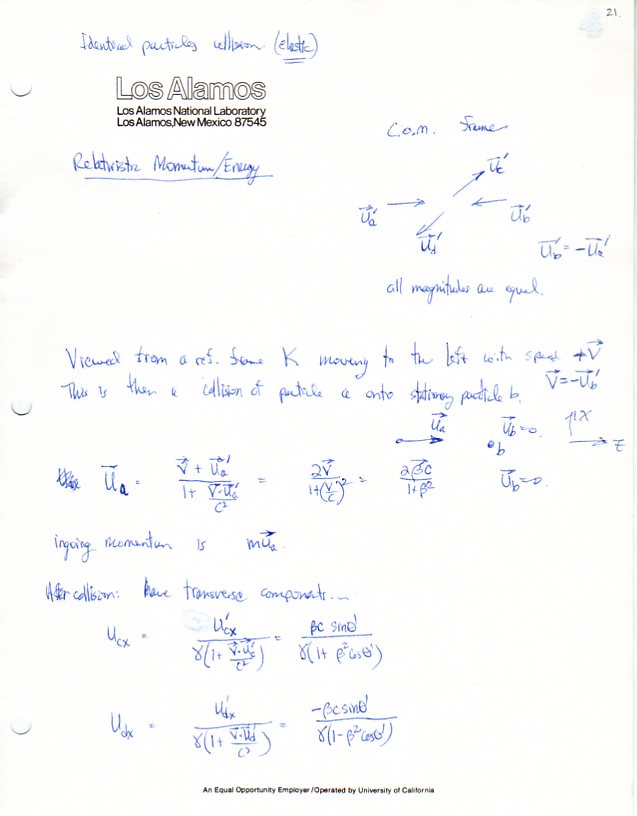 21.
Identical particles collision. (elastic)
Los Alamos
Los Alamos National Laboratory
Los Alamos, New Mexico 87545
C.o.m. frame
Relativistic Momentum/Energy
u⃗c'
u⃗a' u⃗b'
u⃗d' u⃗b' = -u⃗a'
all magnitudes are equal.
Viewed from a ref. frame K moving to the left with speed +V⃗
This is then a collision of particle a onto stationary particle b. V⃗ = -u⃗b'
u⃗a u⃗b = 0. x
b z
u⃗a = (V⃗ + u⃗a') / (1 + V⃗·u⃗a'/c²) = 2V⃗ / (1+(V/c)²) = 2β⃗c / (1+β²) u⃗b = 0.
ingoing momentum is mu⃗a.
After collision: have transverse components...
ucx = ucx' / γ(1 + V⃗·u⃗c'/c²) = βc sinθ' / γ(1 + β²cosθ')
udx = udx' / γ(1 + V⃗·u⃗d'/c²) = -βc sinθ' / γ(1-β²cosθ')
An Equal Opportunity Employer/Operated by University of California